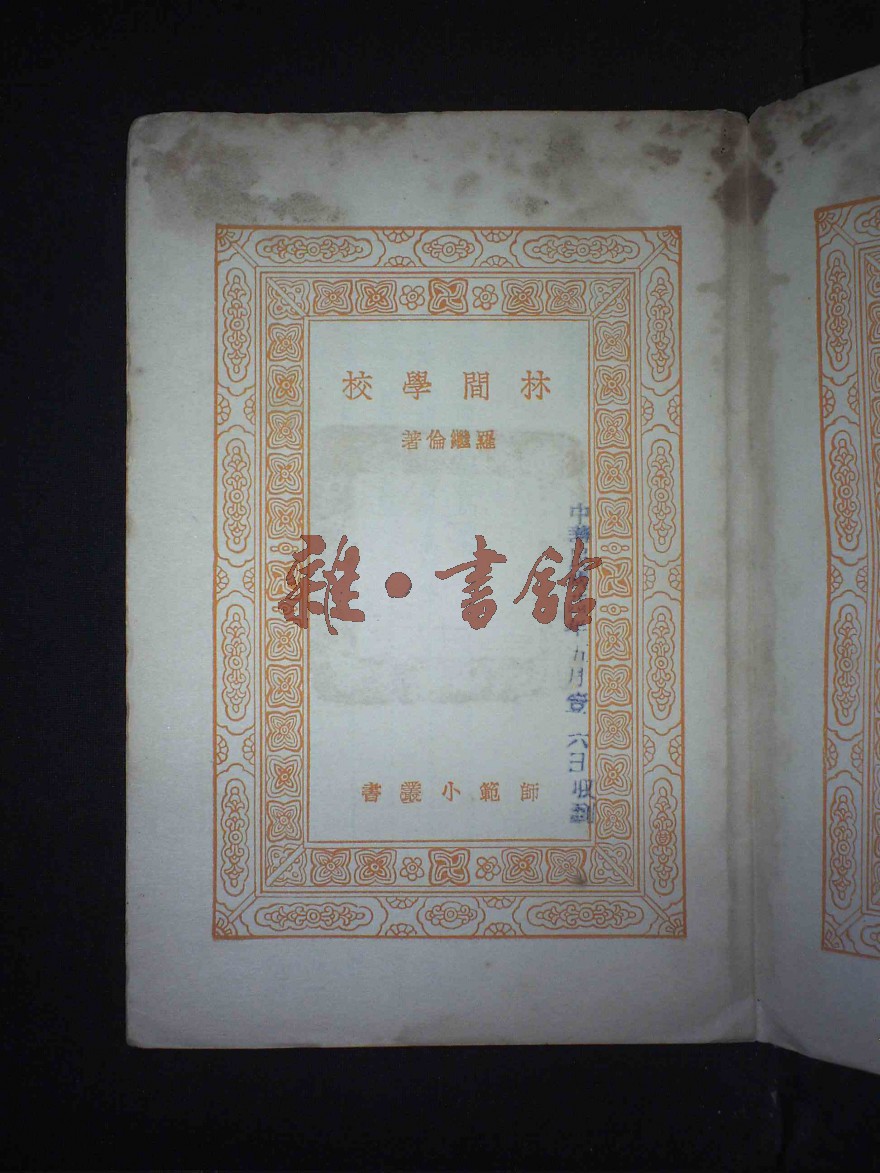 林間學校
羅繼倫著
雜·書館
中華
月壹六日收到
師範小叢書